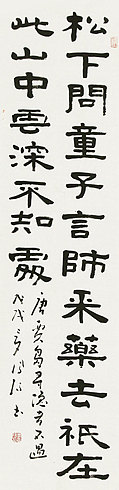 松下問童子言師采藥去祇在
此山中雲深不知處
唐賈島尋隱者不遇